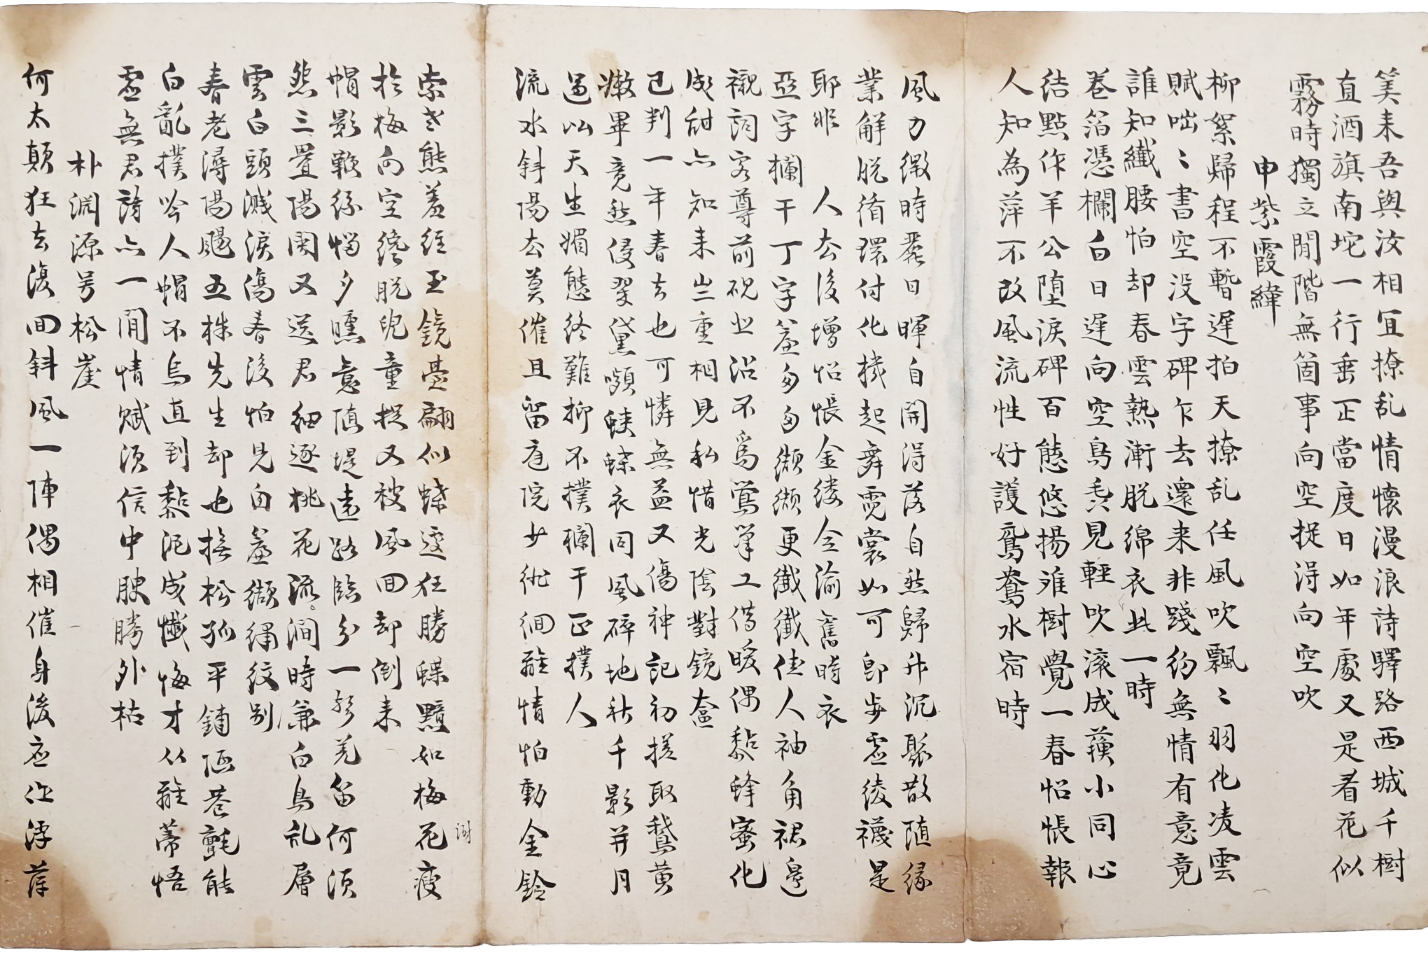 筭来吾與汝相宜撩乱情懷漫浪詩驛路西城千樹
直酒旗南坨一行垂正當度日如年處又是看花似
霧時獨立閒階無箇事向空捉淂向空吹
申紫霞緯
柳絮歸程不暫遲拍天撩乱任風吹飄〻羽化凌雲
賦咄〻書空没字碑乍去還来非踐約無情有意竟
誰知纖腰怕却春雲熱漸脱綿衣此一時
巻箔憑欄白日遲向空鳥㒵見輕吹滚成蘋小同心
結點作羊公堕淚碑百態悠揚难樹覺一春怊悵報
人知為萍不改風流性好護鴛鴦水宿時
風力微時麗日暉自開淂落自然歸升沉聚散随緣
業解脱循環付化機起舞霓裳如可即步虚綾襪是
耶非 人去後增怊悵金縷全渝舊時衣
亞字欄干丁字簾匆匆纈纈更纖纖佳人袖角裙邊
襯詞客尊前硯北沿不爲鶯掌工借暖偶黏蜂蜜化
成甜亦知来岂重相見私惜光陰對鏡奩
已判一年春去也可憐無益又傷神記初搓取鵞黄
嫩畢竟愁侵翠黛顰蛺蝶衣同風碎地秋千影并月
過以天生媚態终難抑不撲欄干正撲人
流水斜陽去莫催且留庭院少徘徊離情怕動金鈴
索老態羞經玉鏡臺翩似蝶邊狂勝蝶黯如梅花瘦
於梅向空纔脱兒童捉又被風回却倒来
帽影鞭絲惜夕曛意隨堤遠路臨分一聲羌笛何须
怨三疊陽関又送君細逐桃花流澗時兼白鳥乱層
雲白頭濺淚傷春後怕見勾簾纈縟紋别
春老潯陽颺五株先生却也撫松孤平鋪陋巷氈能
白亂撲吟人帽不烏直到黏泥成懺悔才以離蒂悟
虚無君詩亦一閒情赋须信中腴勝外枯
朴淵源号松崖
何太顛狂去復回斜風一陣偶相催身後应仳浮萍